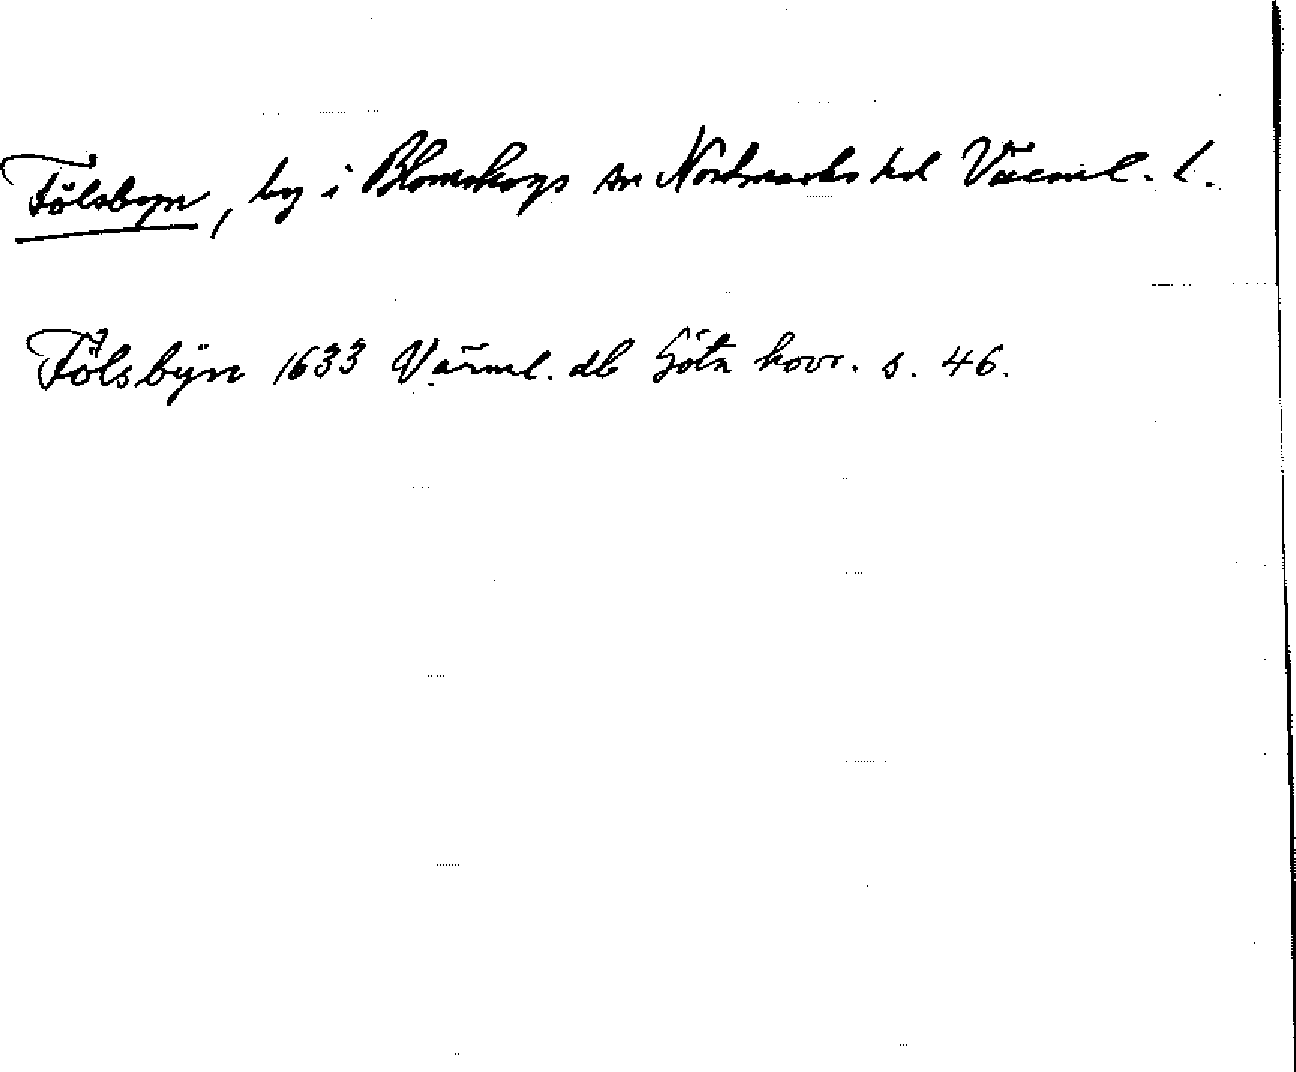 Fölsbyn, by i Blomskogs sn Nordmarks hd Värml. l.
Fölsbÿn 1633 Värml. db Göta hovr. s. 46.